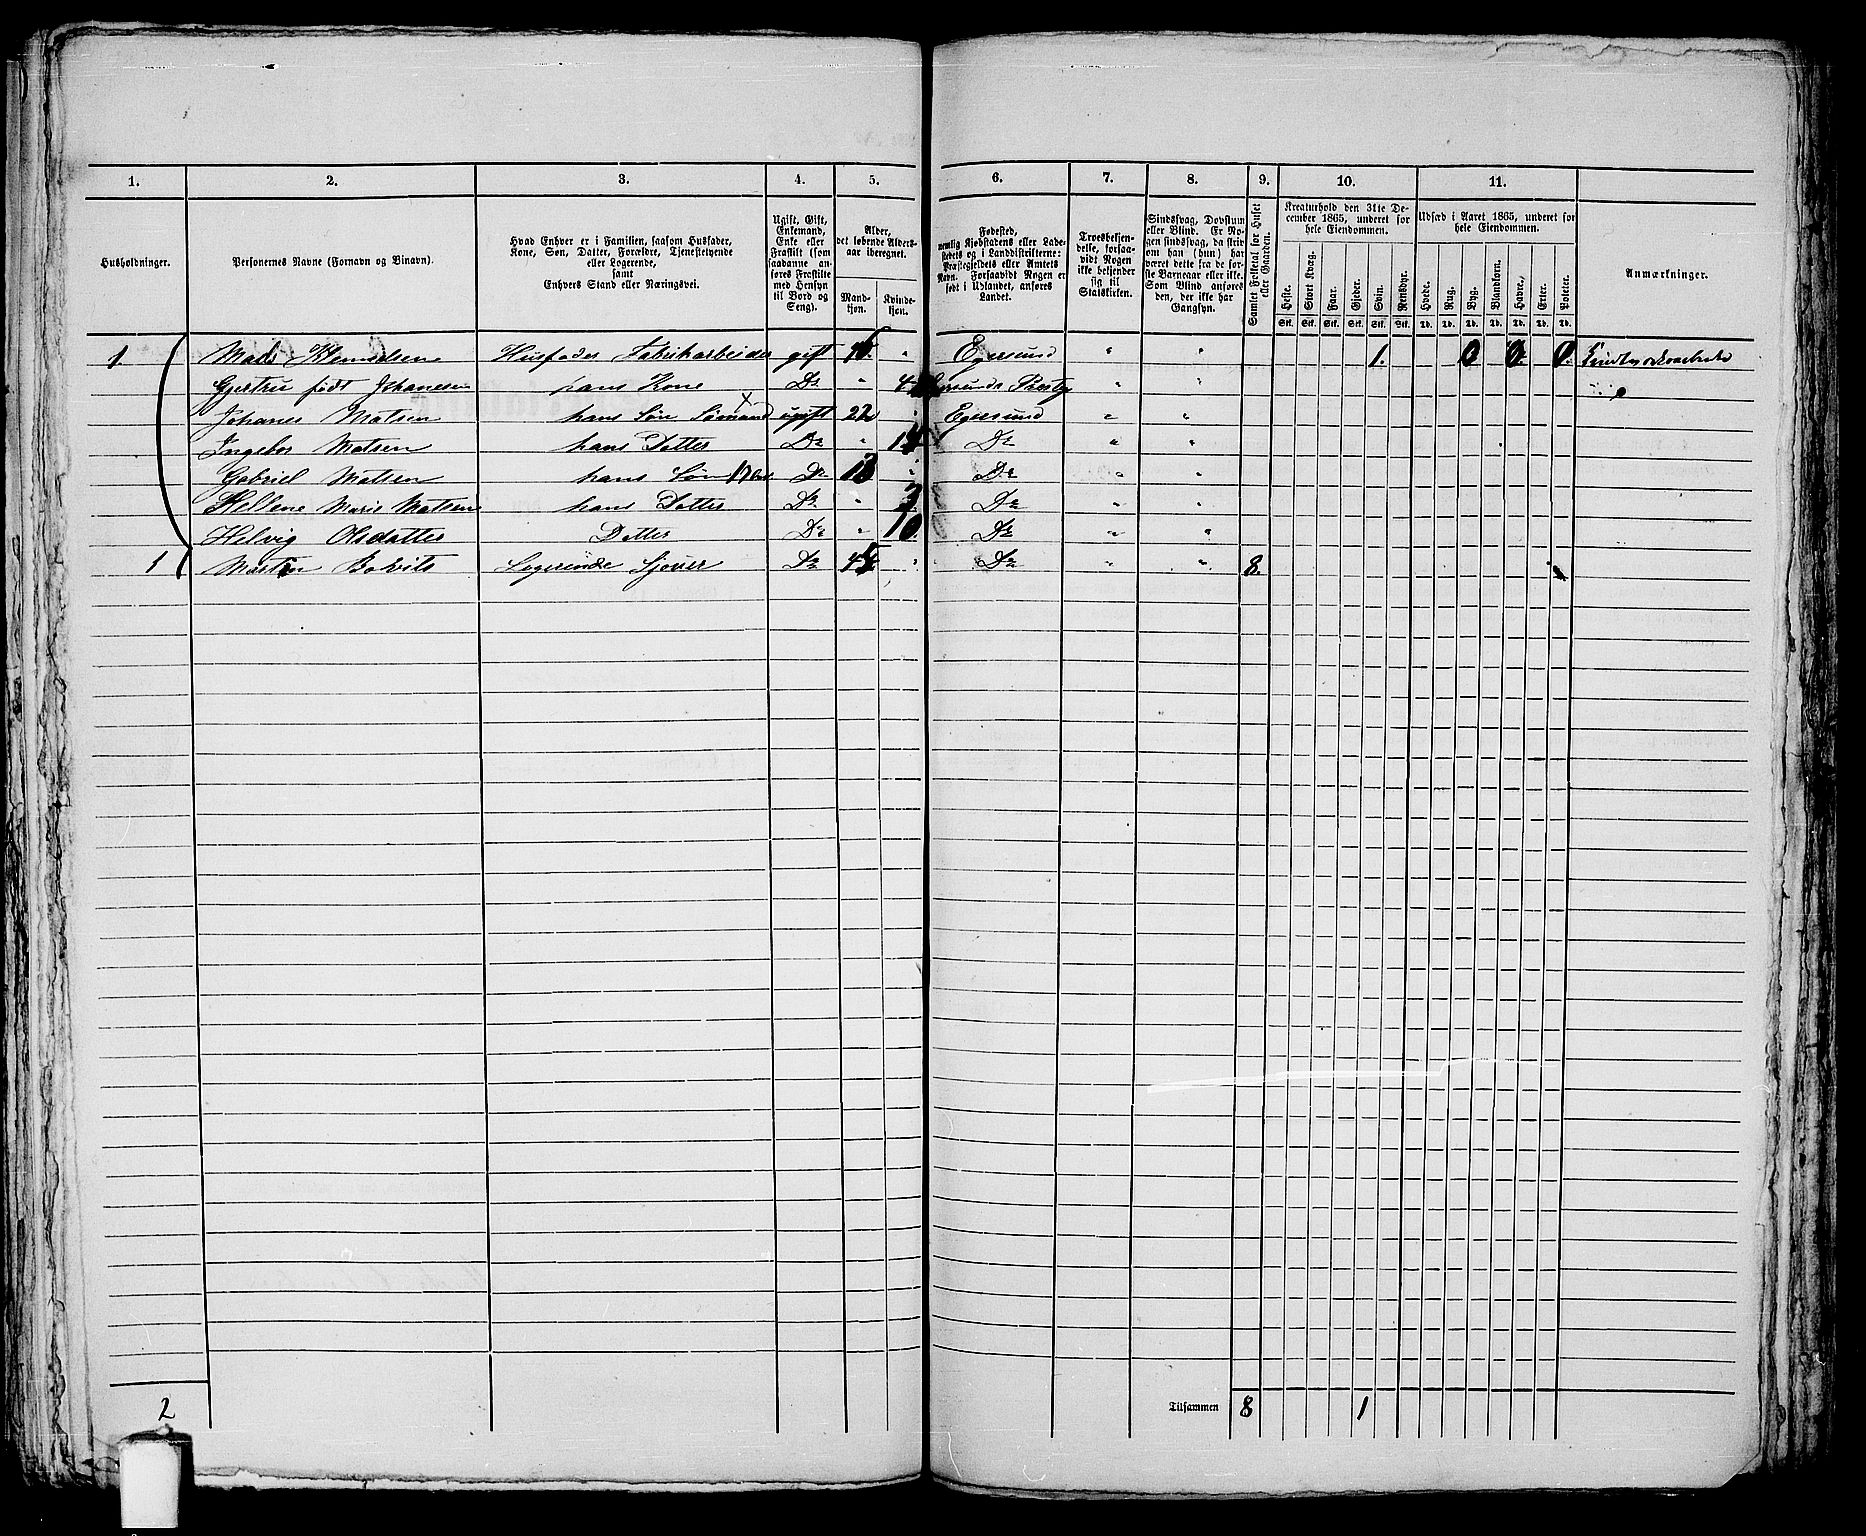 1. 2. 3. 4. 5. 6. 7. 8. 9. 10. 11.
Husholdninger.
Personernes Navne (Fornavn og Binavn).
Hvad Enhver er i Familien, saasom Husfader,
Kone, Søn, Datter, Forældre, Tjenestetyende
eller Logerende,
samt
Enhvers Stand eller Næringsvei.
Ugift, Gift,
Enkemand,
Enke eller
Fraskilt (som
saadanne an-
føres Fraskilte
med Hensyn
til Bord og
Seng).
Alder,
det løbende Alders-
aar iberegnet.
Mand-
kjøn.
Kvinde-
kjøn.
Fødested,
nemlig Kjøbstadens eller Lade-
stedets og i Landdistrikterne:
Præstegjeldets eller Amtets
Navn. Forsaavidt Nogen er
født i Udlandet, anføres
Landet.
Troesbekjen-
delse, forsaa-
vidt Nogen
ikke bekjender
sig til
Statskirken.
Sindssvag, Døvstum
eller Blind. Er No-
gen sindssvag, da skriv
om han (hun) har
været dette fra de før-
ste Barneaar eller ikke.
Som Blind anføres
den, der ikke har
Gangsyn.
Samlet Folketal for Huset
eller Gaarden.
Kreaturhold den 31te De-
cember 1865, underet for
hele Eiendommen.
Heste. Stort Kvæg. Faar. Gjeder. Svin. Rensdyr.
Stk. Stk. Stk. Stk. Stk. Stk.
Udsæd i Aaret 1865, underet for
hele Eiendommen.
Hvede. Rug. Byg. Blandkorn. Havre. Erter. Poteter.
Td. Td. Td. Td. Td. Td. Td.
Anmærkninger.
1 Mads gift " Egersund " " 1. 0 0 0
Gjertru født Johanesen hans Kone Do " " "
Johanes Matsen hans Søn Sømand ugift 22 " Egersund " "
Ingebor Matsen hans Datter Do " 14 Do " "
Gabriel Matsen hans Søn Do " Do " "
Hellene Marie Matsen hans Datter Do " Do " "
Helvig Olsdatter Datter Do " 10 Do " "
1 Logerende Do " Do " " 8.
2 Tilsammen 8 1